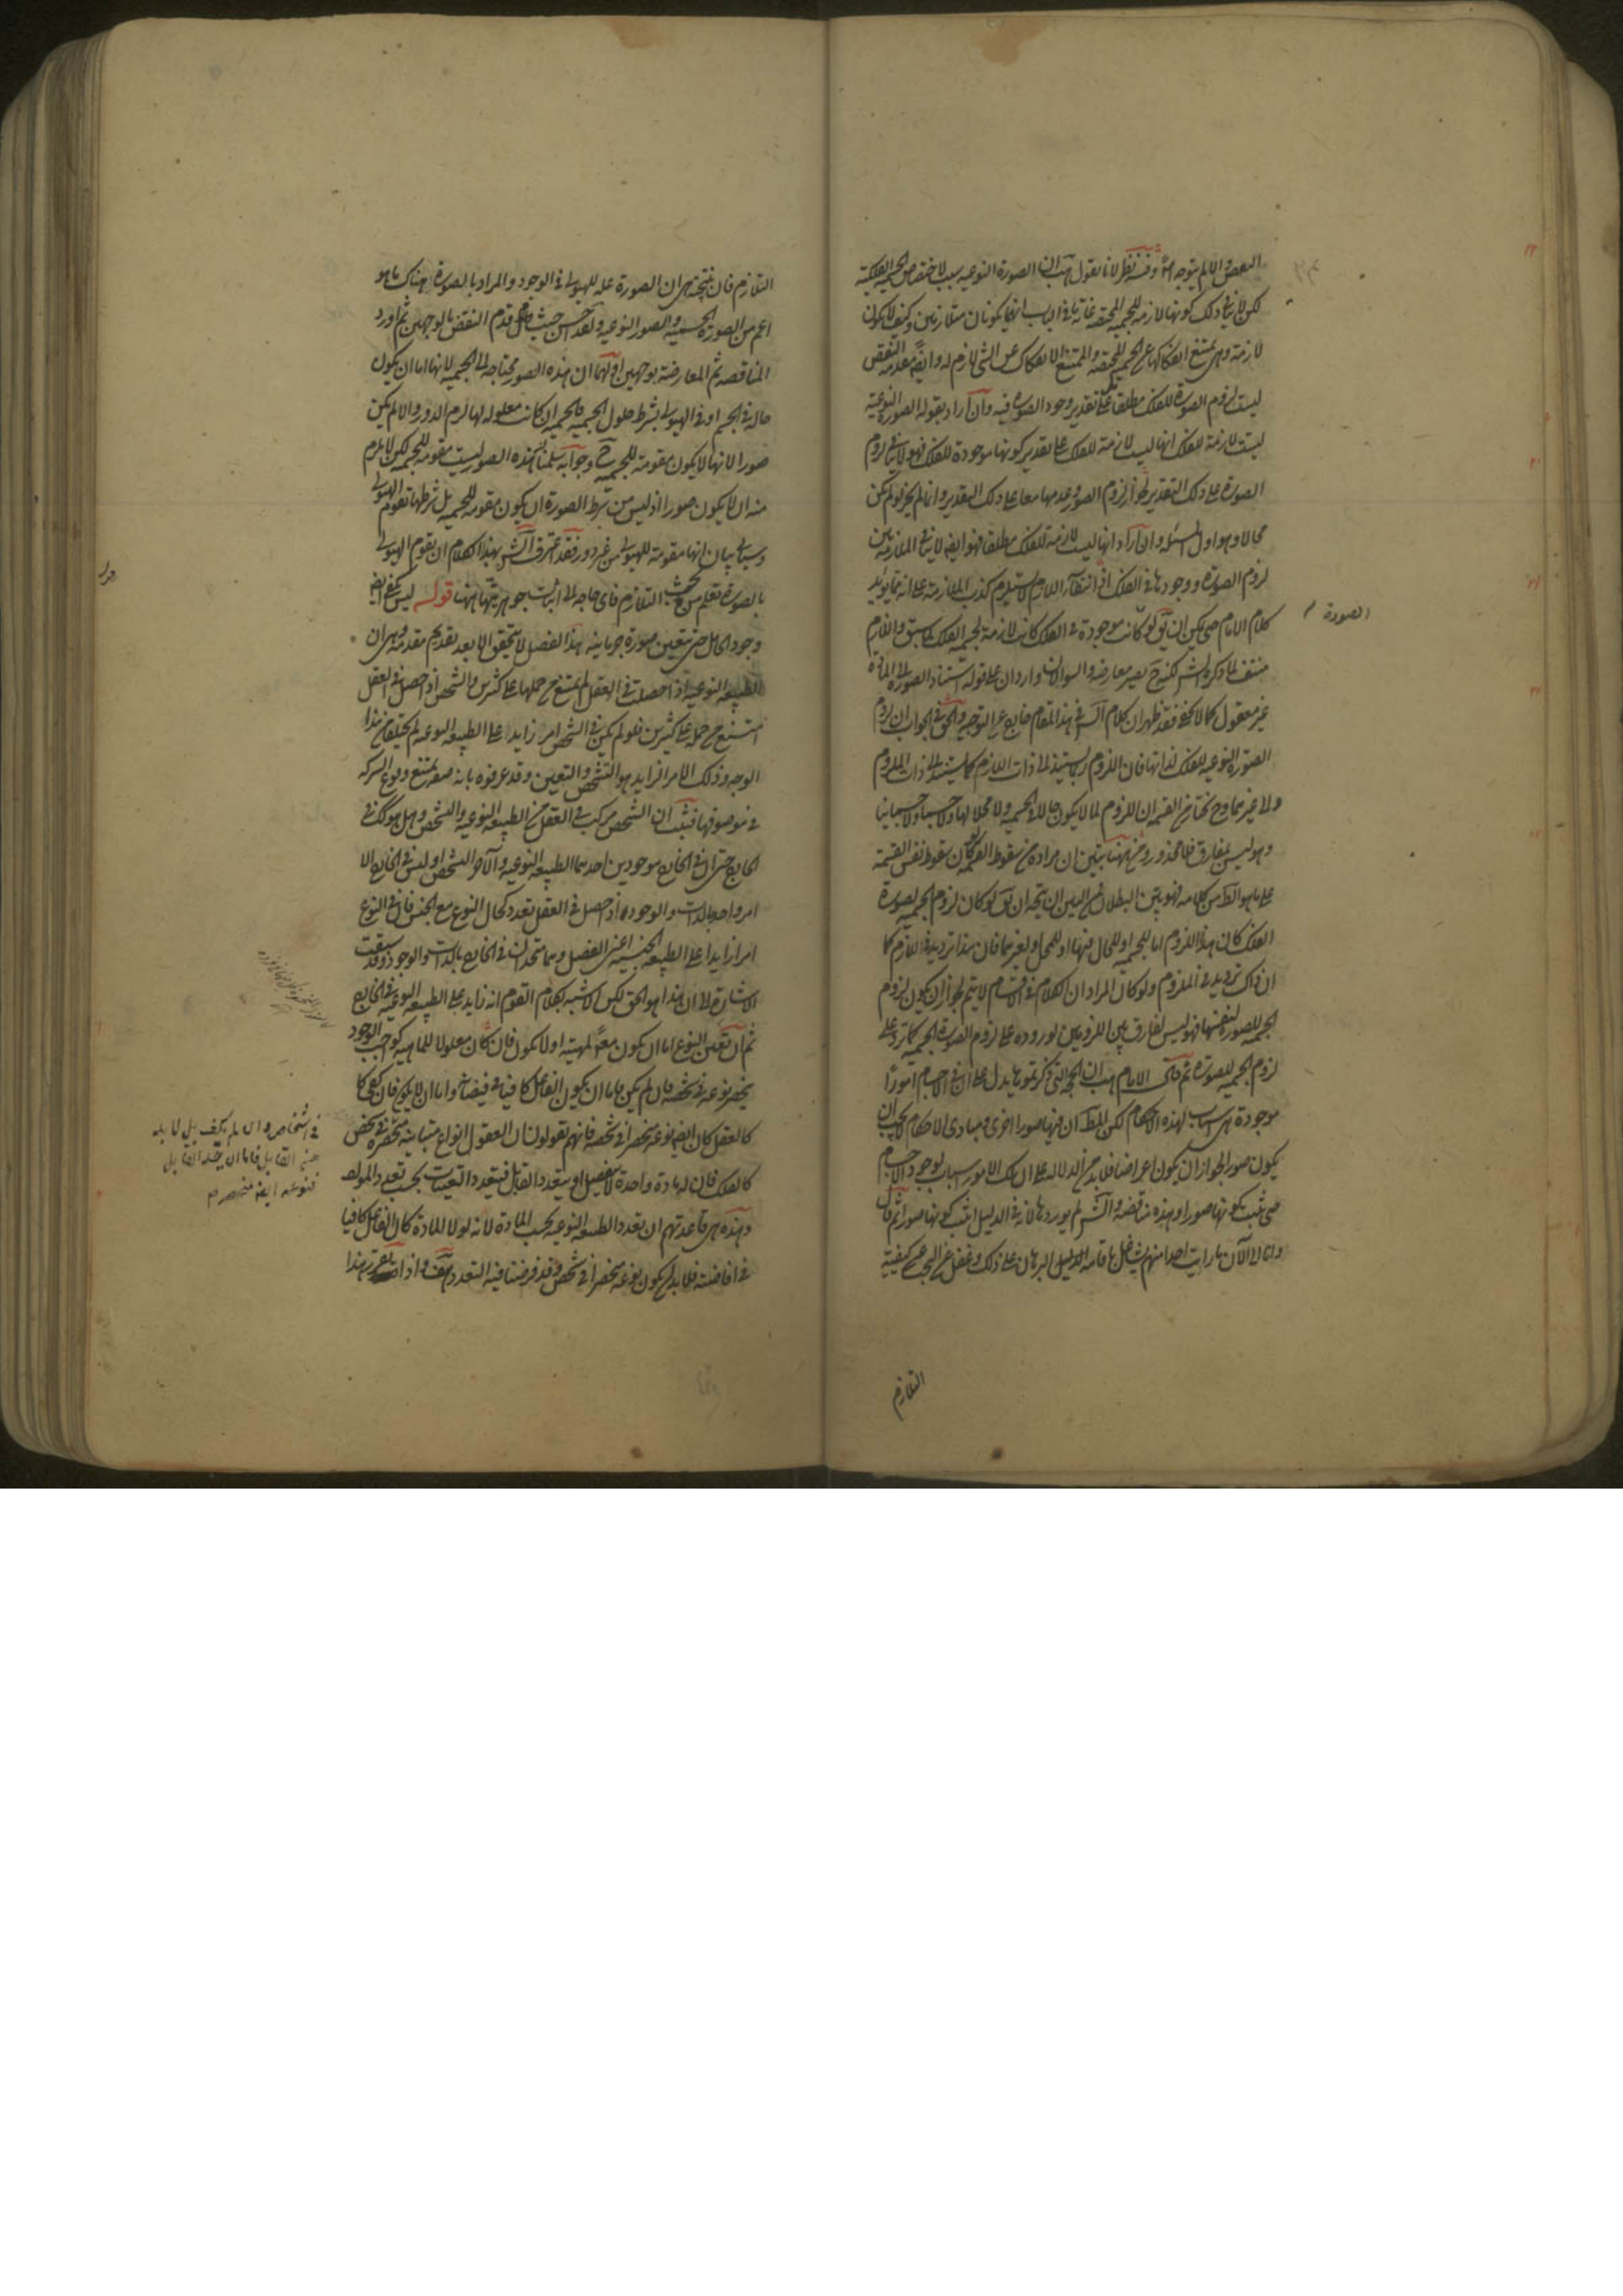 البعض والا لم يتوجه اصلا وفيه نظر لانا نقول هب ان الصورة النوعيه سبب لاختصاص الجسمية الفلكية
لكن لا ينافى ذلك كونها لازمه للجسمية المختصه غاية ما فى الباب انهما يكونان متلازمين وكيف لا يكون
لازمة وهى يمتنع انفكاكها عن الجسمية المختصه والممتنع الانفكاك عن الشى لازم له وايضا مقدمة النقض
ليست لزوم الصورة للفلك مطلقا بل على تقدير وجود الصورة فيه وان اراد بقوله الصورة النوعية
ليست لازمة للفلك انها ليست لازمة للفلك على تقدير كونها موجودة للفلك فهو لا ينافى لزوم
الصورة على ذلك التقدير لجواز لزوم الصورة وعدمها معا على ذلك التقدير وانما لم يجز لو لم يكن
محالا وهو اول المسئلة وان اراد انها ليست لازمة للفلك مطلقا فهو ايضا لا ينافى الملازمة بين
لزوم الصورة ووجودها فى الفلك اذ انتفاء اللازم لا يستلزم كذب الملازمة على انه مما يؤيد
كلام الامام حتى يمكن ان يق لو كانت موجودة فى الفلك كانت لازمة لجسمية الفلك لما سبق واللازم
الصورة
منتف لما ذكره الش لكنه ح يصير معارضه والسوالان واردان على قوله استناد الصورة الى المادة
غير معقول كما لا يخفى فقد ظهر ان كلام الش فى هذا المقام خارج عن التوجيه والحق فى الجواب ان لزوم
الصورة النوعيه للفلك لذاتها فان اللزوم ربما يستند الى ذات اللازم كما يستند الى ذات الملزوم
ولا غيرهما وح نختار من القسمة ان اللزوم لما لا يكون حالا فى الجسمية ولا محلا لها ولا جسما ولا جسمانيا
وهو ليس بمفارق فلا محذور ومن ههنا يتبين ان مراده من سقوط القسمة ان كان سقوط نفس القسمة
على ما هو الظ من كلامه فهو بين البطلان
الفلك كان هذا اللزوم اما للجسمية او للحال فيها او للمحل او لغيرهما فان هذا ترديد فى اللازم كما
ان ذاك ترديد فى الملزوم ولو كان المراد ان الكلام فى الاقسام لا يتم لجواز ان يكون لزوم
الجسمية للصورة لنفسها فهو ليس لفارق بين اللزومين لوروده على لزوم الصورة الجسمية كما ترد على
لزوم الجسمية للصورة ثم قال الامام هب ان الحجة التى ذكرتموها يدل على ان فى الاجسام امورا
موجودة هى اسباب لهذه الاحكام لكن لم قلتم ان فيها صورا اخرى ومبادى الاحكام لا يجب ان
يكون صورا لجواز ان يكون اعراضا فلا بد من الدلالة على ان تلك الامور اسباب لوجود الاجسام
حتى يثبت كونها صورا وهذه مناقضه والش لم يوردها لانه فى الدليل اثبت كونها صورا ثم قال
وانا الى الآن ما رايت احدا منهم يشتغل باقامه الدليل البرهان على ذلك وغفل عن البحث عن كيفية
التلازم
التلازم فان نتيجته هى ان الصورة علة للهيولى فى الوجود والمراد بالصورة هناك ما هو
اعم من الصورة الجسمية والصور النوعيه ولقد احسن حيث قدم النقض بالوجهين ثم اورد
المناقضه ثم المعارضة بوجهين اولهما ان هذه الصور محتاجه الى الجسمية لانها اما ان يكون
حالة فى الجسم او فى الهيولى بشرط حلول الجسمية فالجسمية ان كانت معلولة لها لزم الدور والا لم يكن
صورا لانها لا يكون مقومة للجسمية ح وجوابه سلمنا ان هذه الصور ليست مقومه للجسمية لكن لا يلزم
منه ان لا يكون صورا اذ ليس من شرط الصورة ان يكون مقومة للجسمية بل شرطها تقوم الهيولى
وسياتى بيان انها مقومة للهيولى من غير دور فقد اعترف الش بهذا الكلام ان تقوم الهيولى
بالصورة تعلم من بحث التلازم فاى حاجه الى اثبات جوهريتها ههنا قوله ليس يكفى ايضا
وجود الحامل حتى يتعين صورة جرمانية هذا الفصل لا يتحقق الا بعد تقديم مقدمة وهى ان
الطبيعه النوعية اذا حصلت فى العقل لم يمتنع من حملها على كثيرين والشخص اذا حصل فى العقل
امتنع من حمله على كثيرين فلو لم يكن فى الشخص امر زايد على الطبيعه النوعية لم يختلفا من هذا
الوجه وذلك الامر الزايد هو التشخص والتعين وقد عرفوه بانه صفة يمتنع وقوع الشركة
فى موصوفها فثبت ان الشخص مركب فى العقل من الطبيعه النوعية والتشخص وهل هو كك فى
الخارج حتى ان فى الخارج موجودين احدهما الطبيعه النوعية والآخر التشخص او ليس فى الخارج الا
امر واحد بالذات والوجود اذا حصل فى العقل تعدد كحال النوع مع الجنس فان فى النوع
امرا زايدا على الطبيعة الجنسية اعنى الفصل وهما متحدان فى الخارج بالذات والوجود وقد سبقت
الاشارة الى ان هذا هو الحق لكن الاشبه بكلام القوم انه زايد على الطبيعه النوعية فى الخارج
ثم ان تعين النوع اما ان يكون معلولا لمهيته اولا يكون فان كان معلولا للماهية كواجب الوجود
ينحصر نوعه فى شخصه وان لم يكن فاما ان يكون الفاعل كافيا فى فيضانه واما ان لا يكون فان كفى كا
كالعقل كان ايضا نوعه منحصرا فى شخصه فانهم يقولون ان العقول انواع متباينة منحصرة فى شخص
فى اشخاص وان لم يكف بل لا بد
من القابل فاما ان يتحد القابل
فنوعه ايضا منحصر
كالفلك فان له مادة واحدة لا تنفصل او يتعدد القابل فيتعدد التعينات بحسب تعدد المواد
وهذه هى قاعدتهم ان تعدد الطبيعة النوعية بحسب المادة لانه لولا المادة كان الفاعل كافيا
فى افاضته فلا بد ان يكون نوعه منحصرا فى شخص وقد فرضنا فيه التعدد هف واذا تقرر هذا